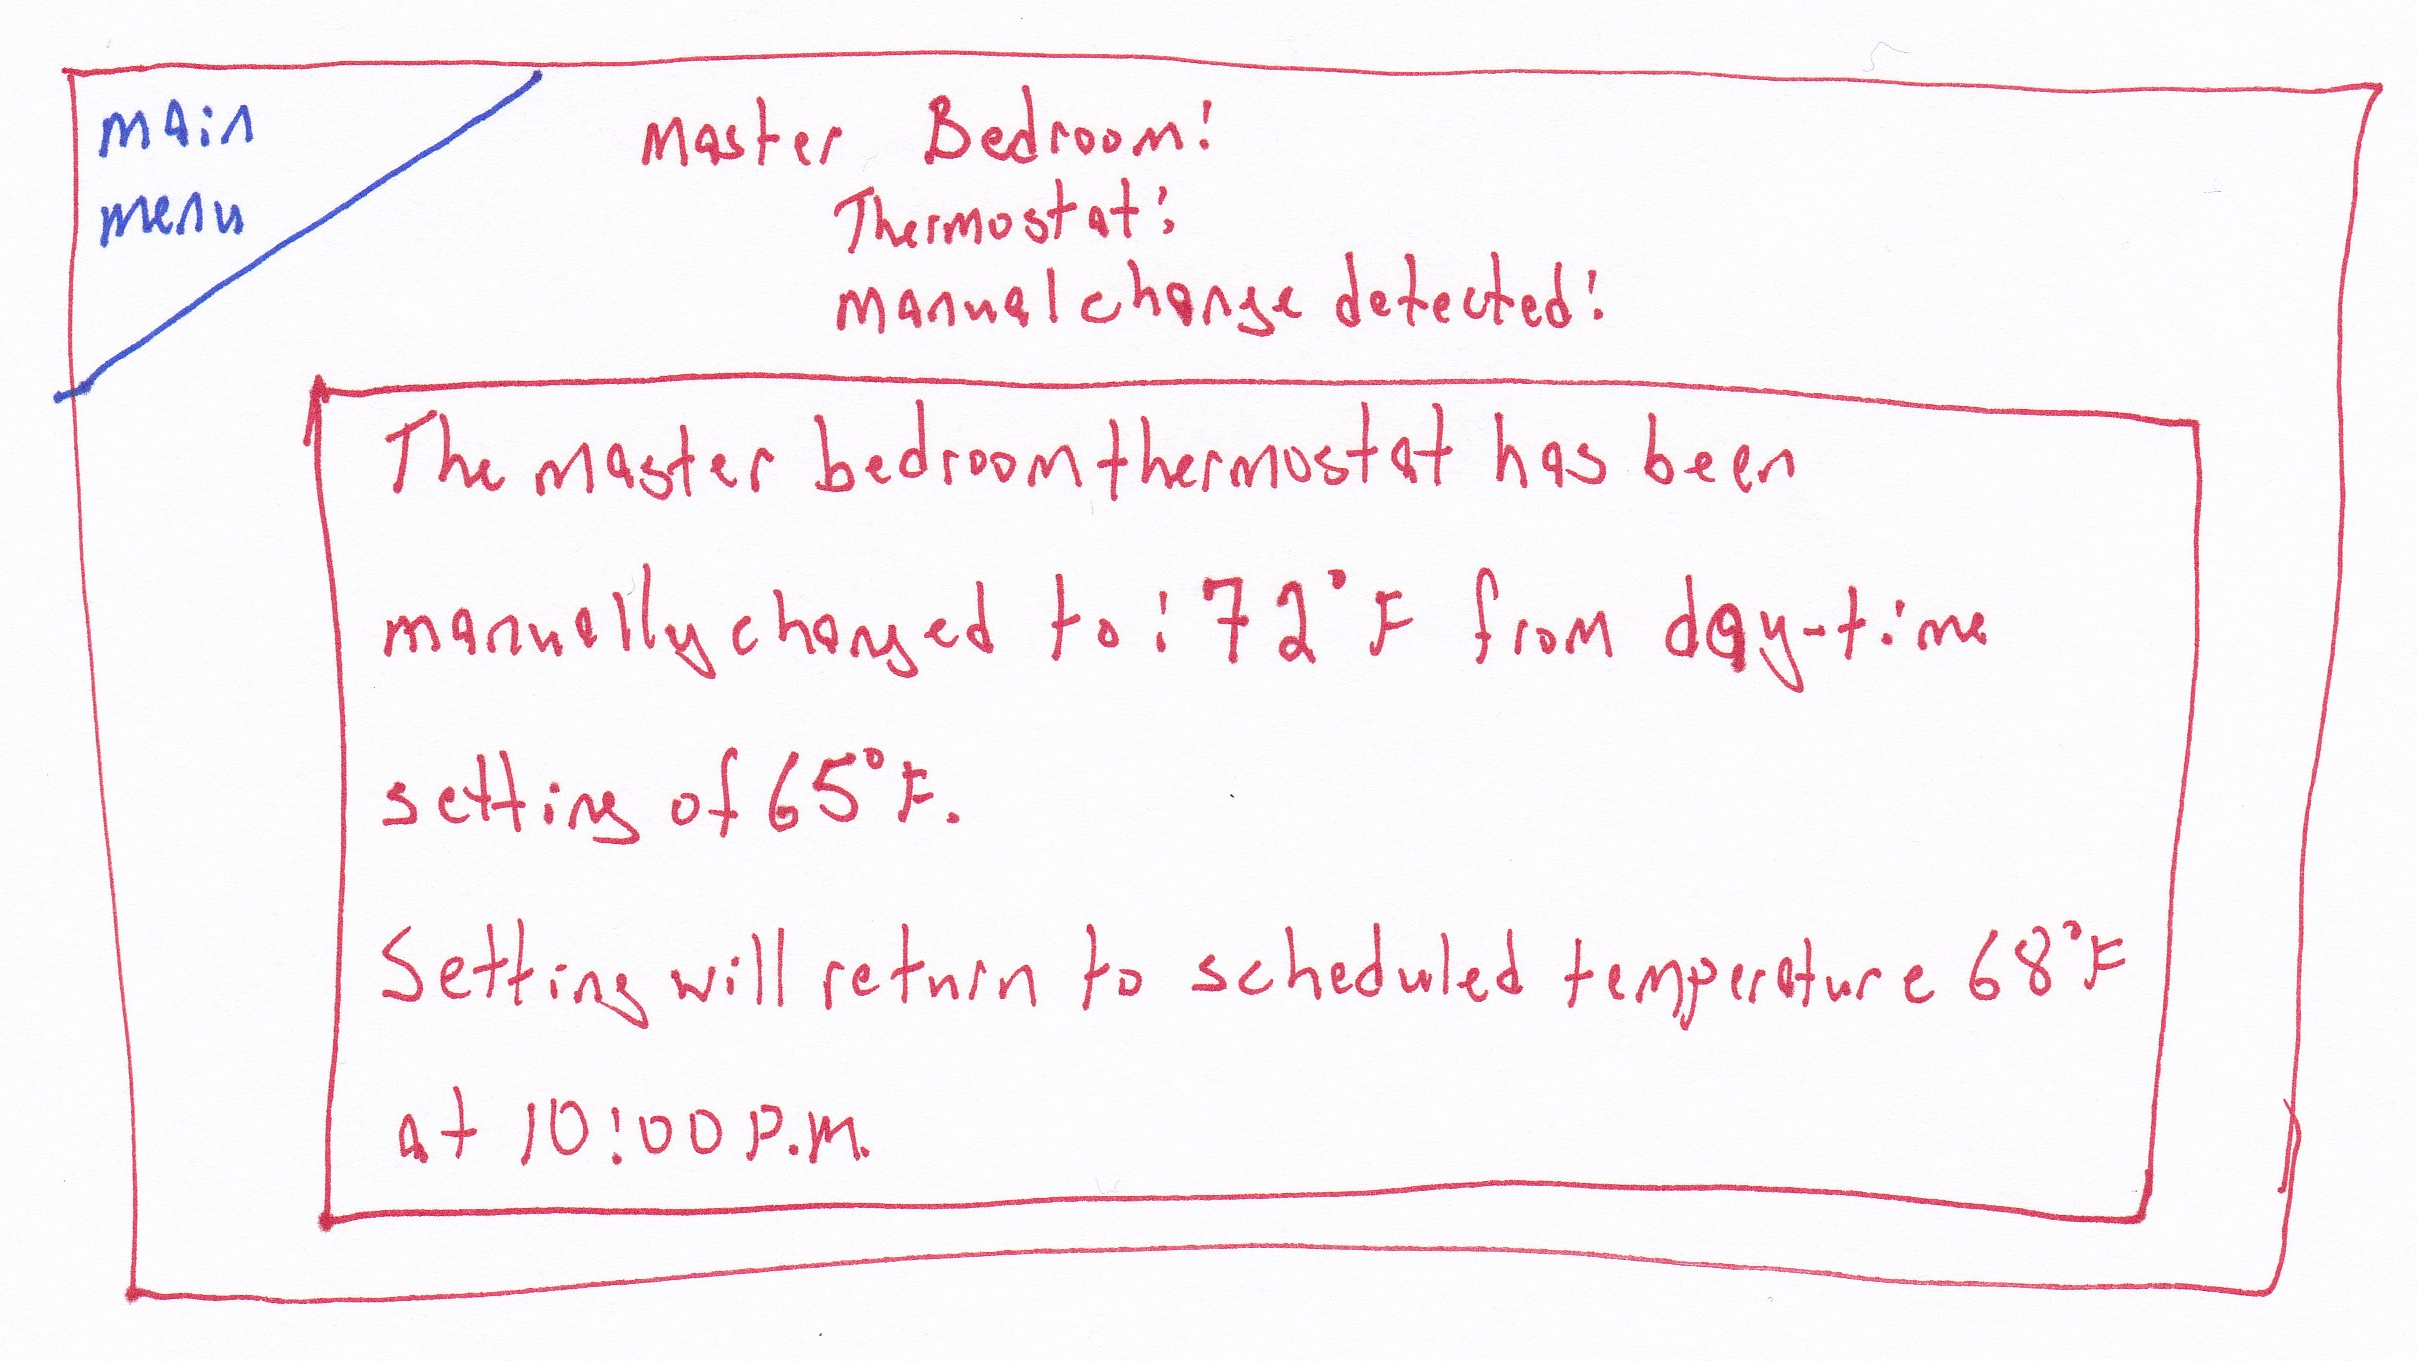 main
menu
Master Bedroom:
Thermostat:
manual change detected:
The master bedroom thermostat has been
manually changed to: 72°F from day-time
setting of 65°F.
Setting will return to scheduled temperature 68°F
at 10:00 P.M.